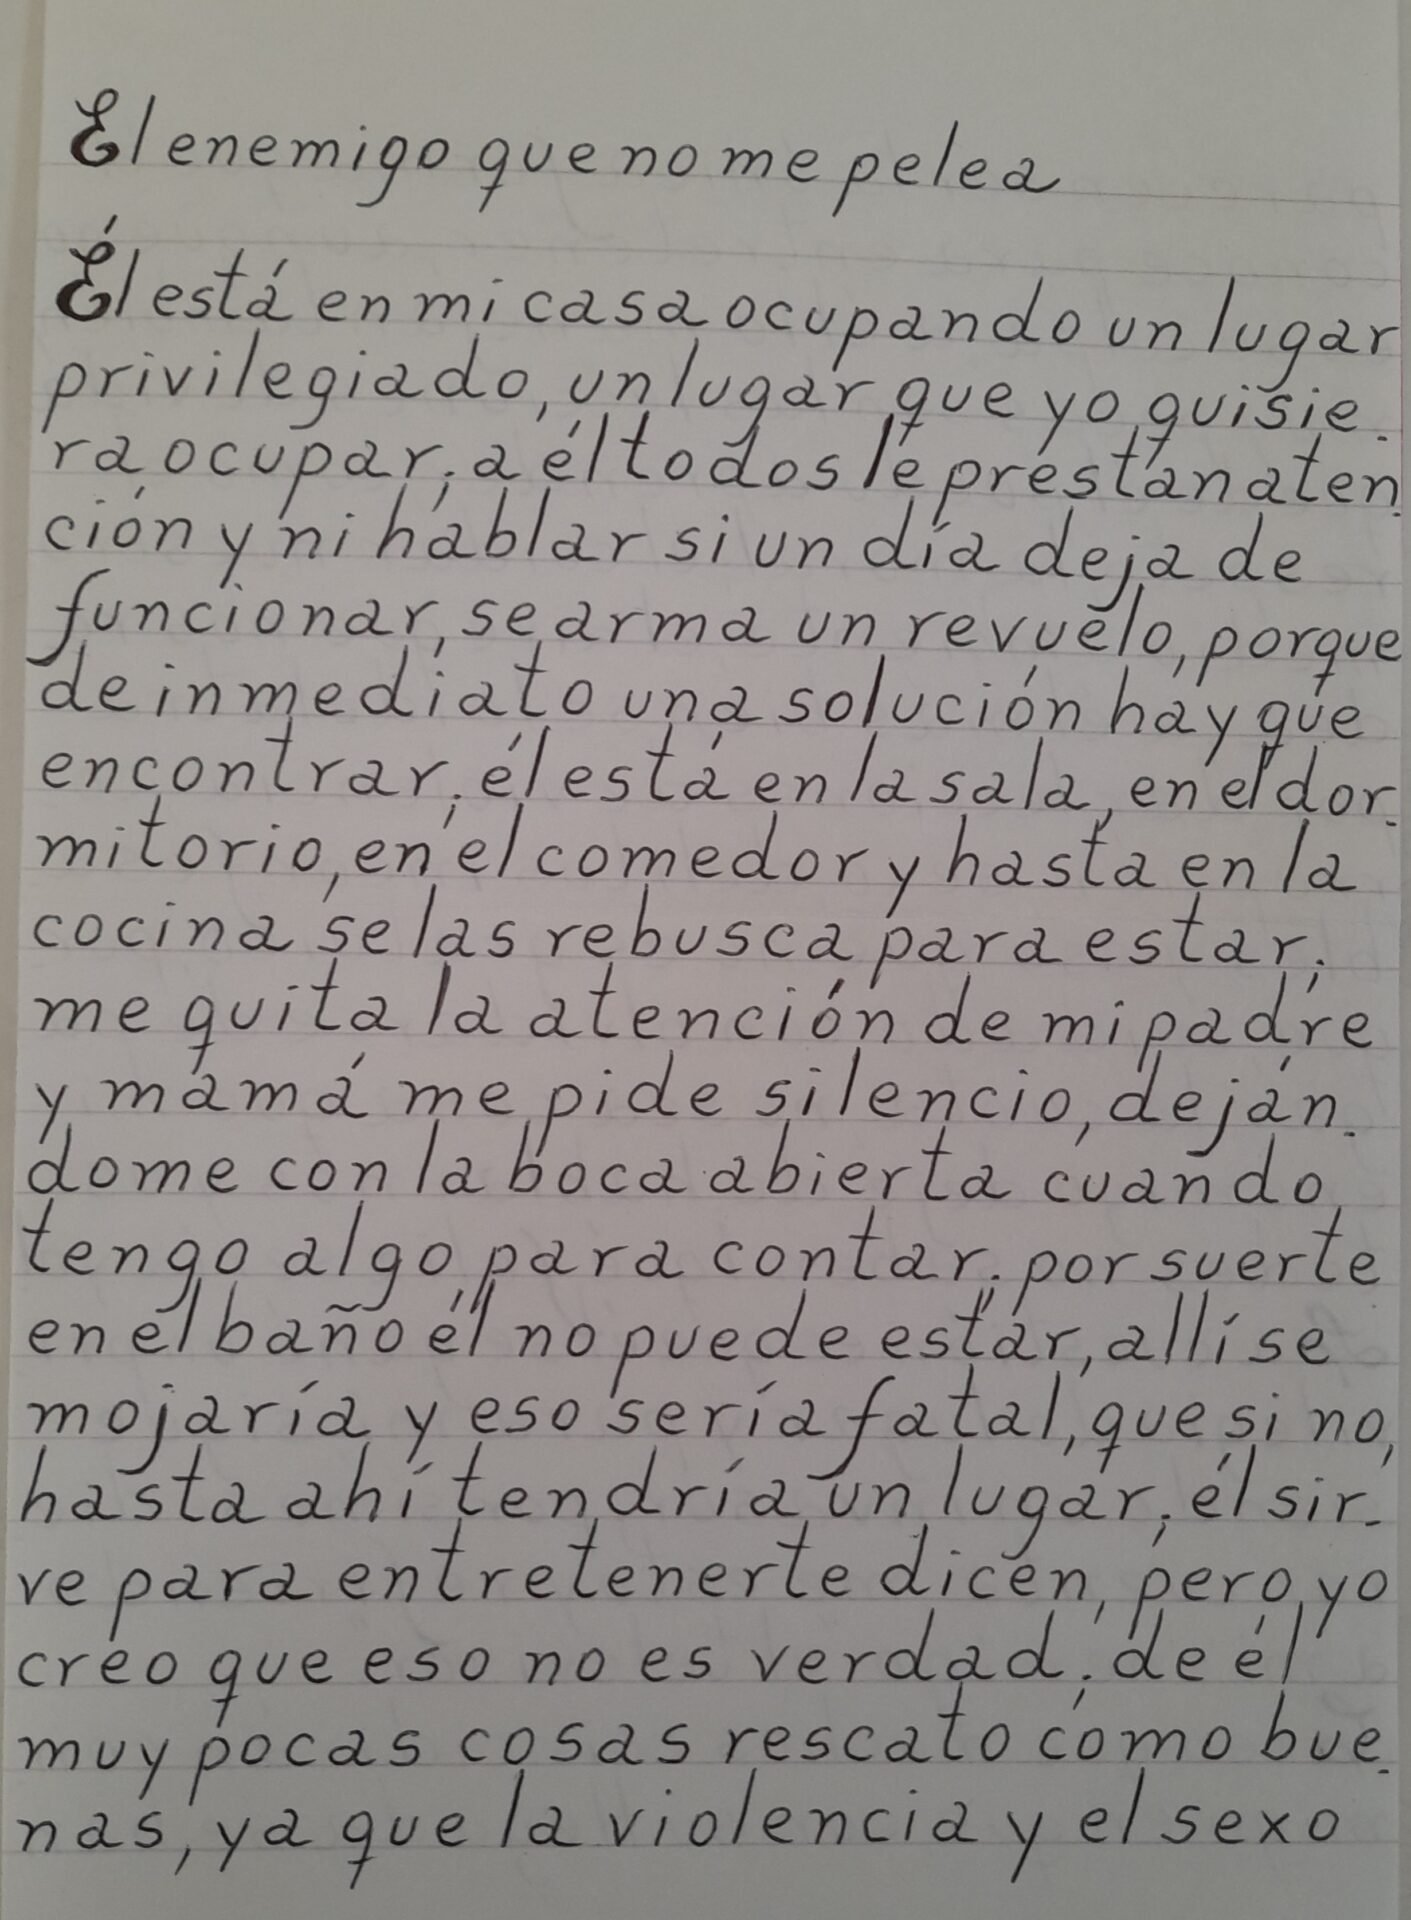 El enemigo que no me pelea
Él está en mi casa ocupando un lugar
privilegiado, un lugar que yo quisie-
ra ocupar; a él todos le prestan aten-
ción y ni hablar si un día deja de
funcionar, se arma un revuelo, porque
de inmediato una solución hay que
encontrar; él está en la sala, en el dor-
mitorio, en el comedor y hasta en la
cocina se las rebusca para estar;
me quita la atención de mi padre
y mamá me pide silencio, deján-
dome con la boca abierta cuando
tengo algo para contar; por suerte
en el baño él no puede estar, allí se
mojaría y eso sería fatal, que si no,
hasta ahí tendría un lugar; él sir-
ve para entretenerte dicen, pero yo
creo que eso no es verdad; de él
muy pocas cosas rescato como bue-
nas, ya que la violencia y el sexo